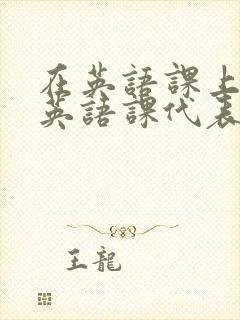 在英語課上
英語課代表
王龍